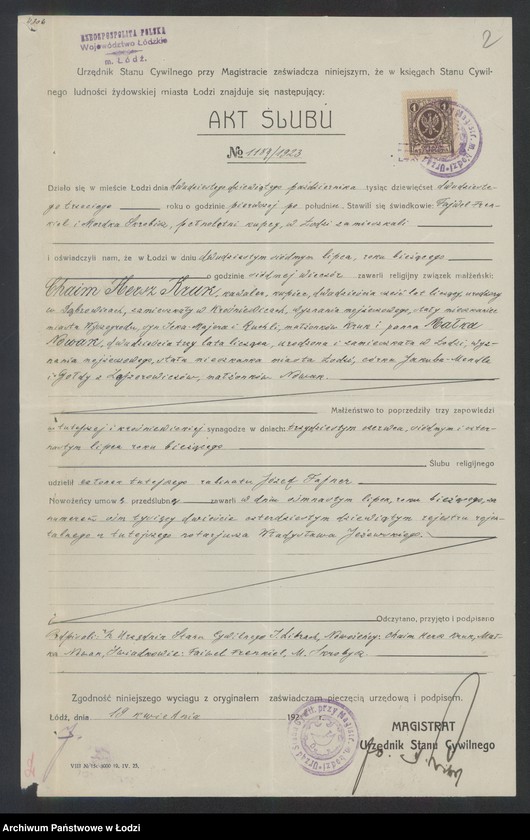 2
RZECZPOSPOLITA POLSKA
Województwo Łódzkie
m. Łódź.
Urzędnik Stanu Cywilnego przy Magistracie zaświadcza niniejszym, że w księgach Stanu Cywil-
nego ludności żydowskiej miasta Łodzi znajduje się następujący:
AKT ŚLUBU
№ 1159/1923
Działo się w mieście Łodzi dnia dwudziestego dziewiątego października tysiąc dziewięćset dwudzieste-
go trzeciego roku o godzinie pierwszej po południe. Stawili się świadkowie: Fajwel Fren-
kiel i Mordka Skrobik, pełnoletni kupcy, w Łodzi zamieszkali
i oświadczyli nam, że w Łodzi w dniu dwudziestym siódmym lipca, roku bieżącego
o godzinie siódmej wieczór zawarli religijny związek małżeński:
Chaim Hersz Kruk, kawaler, kupiec, dwadzieścia sześć lat liczący, urodzony
w Dąbrowicach, zamieszkały w Krośniewicach, wyznania mojżeszowego, stały mieszkaniec
miasta Wyszogrodu, syn Majera i Ruchli, małżonków Kruk i panna Małka
Nowak, dwadzieścia trzy lata licząca, urodzona i zamieszkała w Łodzi, wyz-
nania mojżeszowego, stała mieszkanka miasta Łodzi, córka Jakuba-Mendla
i Gołdy z małżonków Nowak.
Małżeństwo to poprzedziły trzy zapowiedzi
w tutejszej i krośniewickiej synagodze w dniach: trzydziestym czerwca, siódmym i czter-
nastym lipca roku bieżącego
Ślubu religijnego
udzielił członek tutejszego rabinatu Józef Fajner
Nowożeńcy umowę przedślubną zawarli w dniu ósmnastym lipca, roku bieżącego, za
numerem ośm tysięcy dwieście czterdziestym dziewiątym rejestru rejen-
talnego u tutejszego notarjusza Władysława Jeżewskiego.
Odczytano, przyjęto i podpisano
Podpisali: Urzędnik Stanu Cywilnego Nowożeńcy: Chaim Hersz Kruk, Mał-
ka Nowak, Świadkowie: Fajwel Frenkiel, M. Skrobyk.
Zgodność niniejszego wyciągu z oryginałem zaświadczam pieczęcią urzędową i podpisem.
Łódź, dnia 19 kwietnia 192
MAGISTRAT
Urzędnik Stanu Cywilnego
Archiwum Państwowe w Łodzi